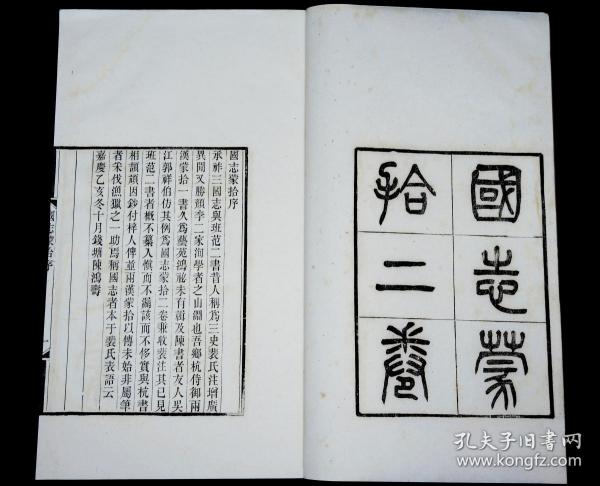 國志蒙
拾二卷
國志蒙拾序
承祚三國志與班范二書昔人稱爲三史裴氏注增廣
異聞又勝顏李二家洵學者之山淵也吾鄉杭侍御兩
漢蒙拾一書久爲藝苑鴻祕未有輯及陳書者友人吳
江郭祥伯仿其例爲國志蒙拾二卷兼收裴注其已見
班范二書者概不纂入愼而不漏該而不侈實與杭書
相頡頏因鈔付梓人俾並兩漢蒙拾以傳未始非屬筆
者采伐漁獵之一助焉稱國志者本于裴氏表語云
嘉慶乙亥冬十月錢塘陳鴻壽
國志蒙拾序
一
孔夫子旧书网
www.kongfz.com